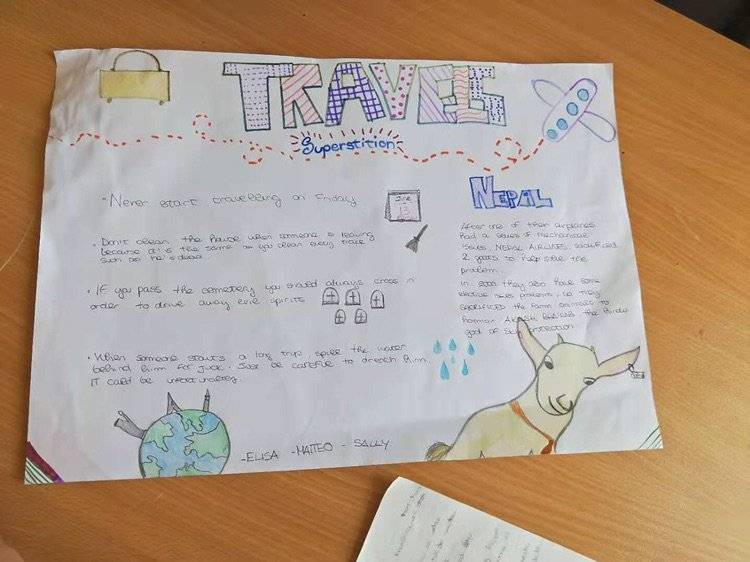 TRAVEL
Superstition
- Never start travelling on Friday
June
13
• Don't clean the house when someone is leaving
because it's the same as you clean every trace
such as he's dead
• IF you pass the cemetery you should always cross in
order to drive away evil spirits
• When someone starts a long trip, spill the water
behind him for luck. Just be careful to drench him.
IT could be unfortunately.
- ELISA - MATTEO - SALLY
NEPAL
After one of their airplanes
had a series of mechanical
issues, NEPAL AIRLINES sacrificed
2 goats to help solve the
problem.
In they also have some
problems, so they
SACRIFICED the farm animals to
AKASH BHAIRAB the Hindu
god of sky protection